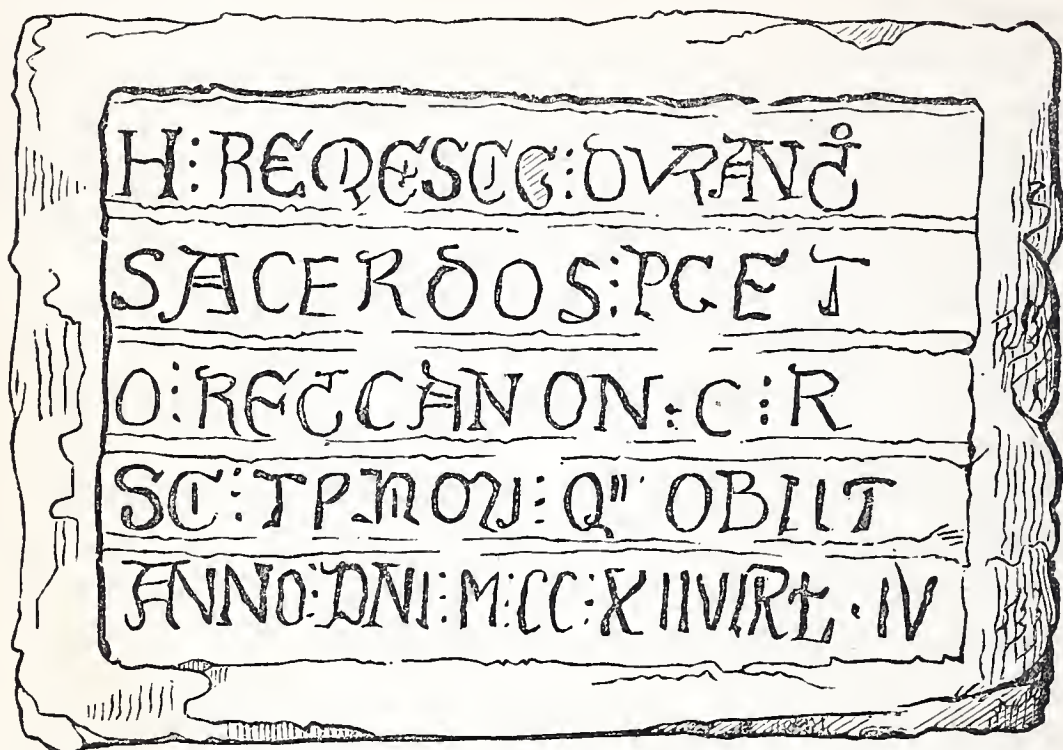 H : REQESCIT : DVRAND
SACERDOS : PCET
O : REG CANON : C : R
SC : TPMON : Q" OBIIT
ANNO : DNI : M : CC : XII VI RL · IV